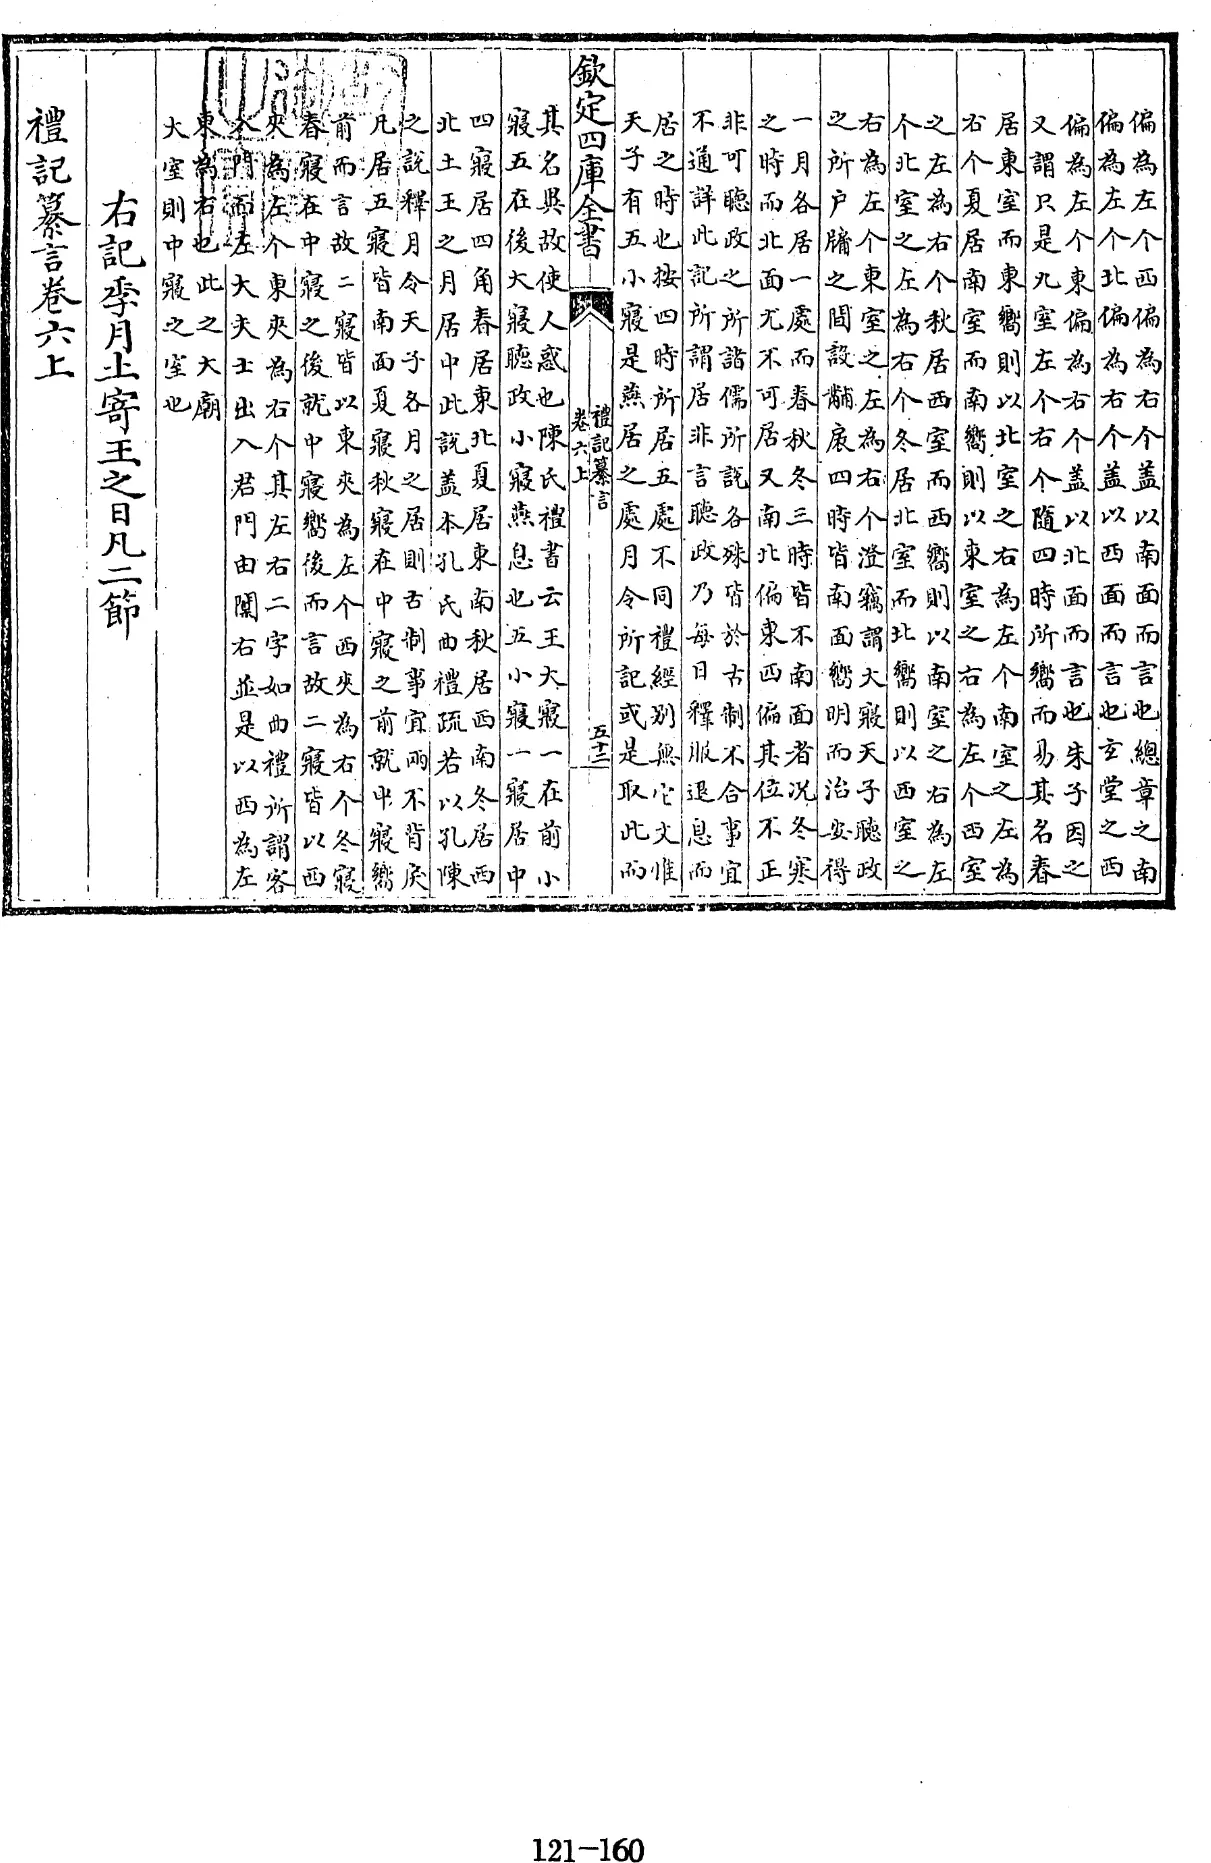 偏為左个西偏為右个盖以南面而言也總章之南
偏為左个北偏為右个盖以西面而言也玄堂之西
偏為左个東偏為右个盖以北面而言也朱子因之
又謂只是九室左个右个隨四時所嚮而易其名春
居東室而東嚮則以北室之右為左个南室之左為
右个夏居南室而南嚮則以東室之右為左个西室
之左為右个秋居西室而西嚮則以南室之右為左
个北室之左為右个冬居北室而北嚮則以西室之
右為左个東室之左為右个澄竊謂大寢天子聽政
之所户牖之間設黼扆四時皆南面嚮明而治安得
一月各居一處而春秋冬三時皆不南面者况冬寒
之時而北面尤不可居又南北偏東西偏其位不正
非可聽政之所諸儒所説各殊皆於古制不合事宜
不通詳此記所謂居非言聽政乃每日釋服退息而
居之時也按四時所居五處不同禮經別無它文惟
天子有五小寢是燕居之處月令所記或是取此而
欽定四庫全書
禮記纂言
卷六上
五十三
其名與故使人惑也陳氏禮書云王大寢一在前小
寢五在後大寢聽政小寢燕息也五小寢一寢居中
四寢居四角春居東北夏居東南秋居西南冬居西
北土王之月居中此説盖本孔氏曲禮疏若以孔陳
之説釋月令天子各月之居則古制事宜兩不背戾
凡居五寢皆南面夏寢秋寢在中寢之前就中寢嚮
前而言故二寢皆以東夾為左个西夾為右个冬寢
春寢在中寢之後就中寢嚮後而言故二寢皆以西
夾為左个東夾為右个其左右二字如曲禮所謂客
入門而左大夫士出入君門由闑右並是以西為左
東為右也此之大廟
大室則中寢之室也
右記季月土寄王之日凡二節
禮記纂言卷六上
121-160